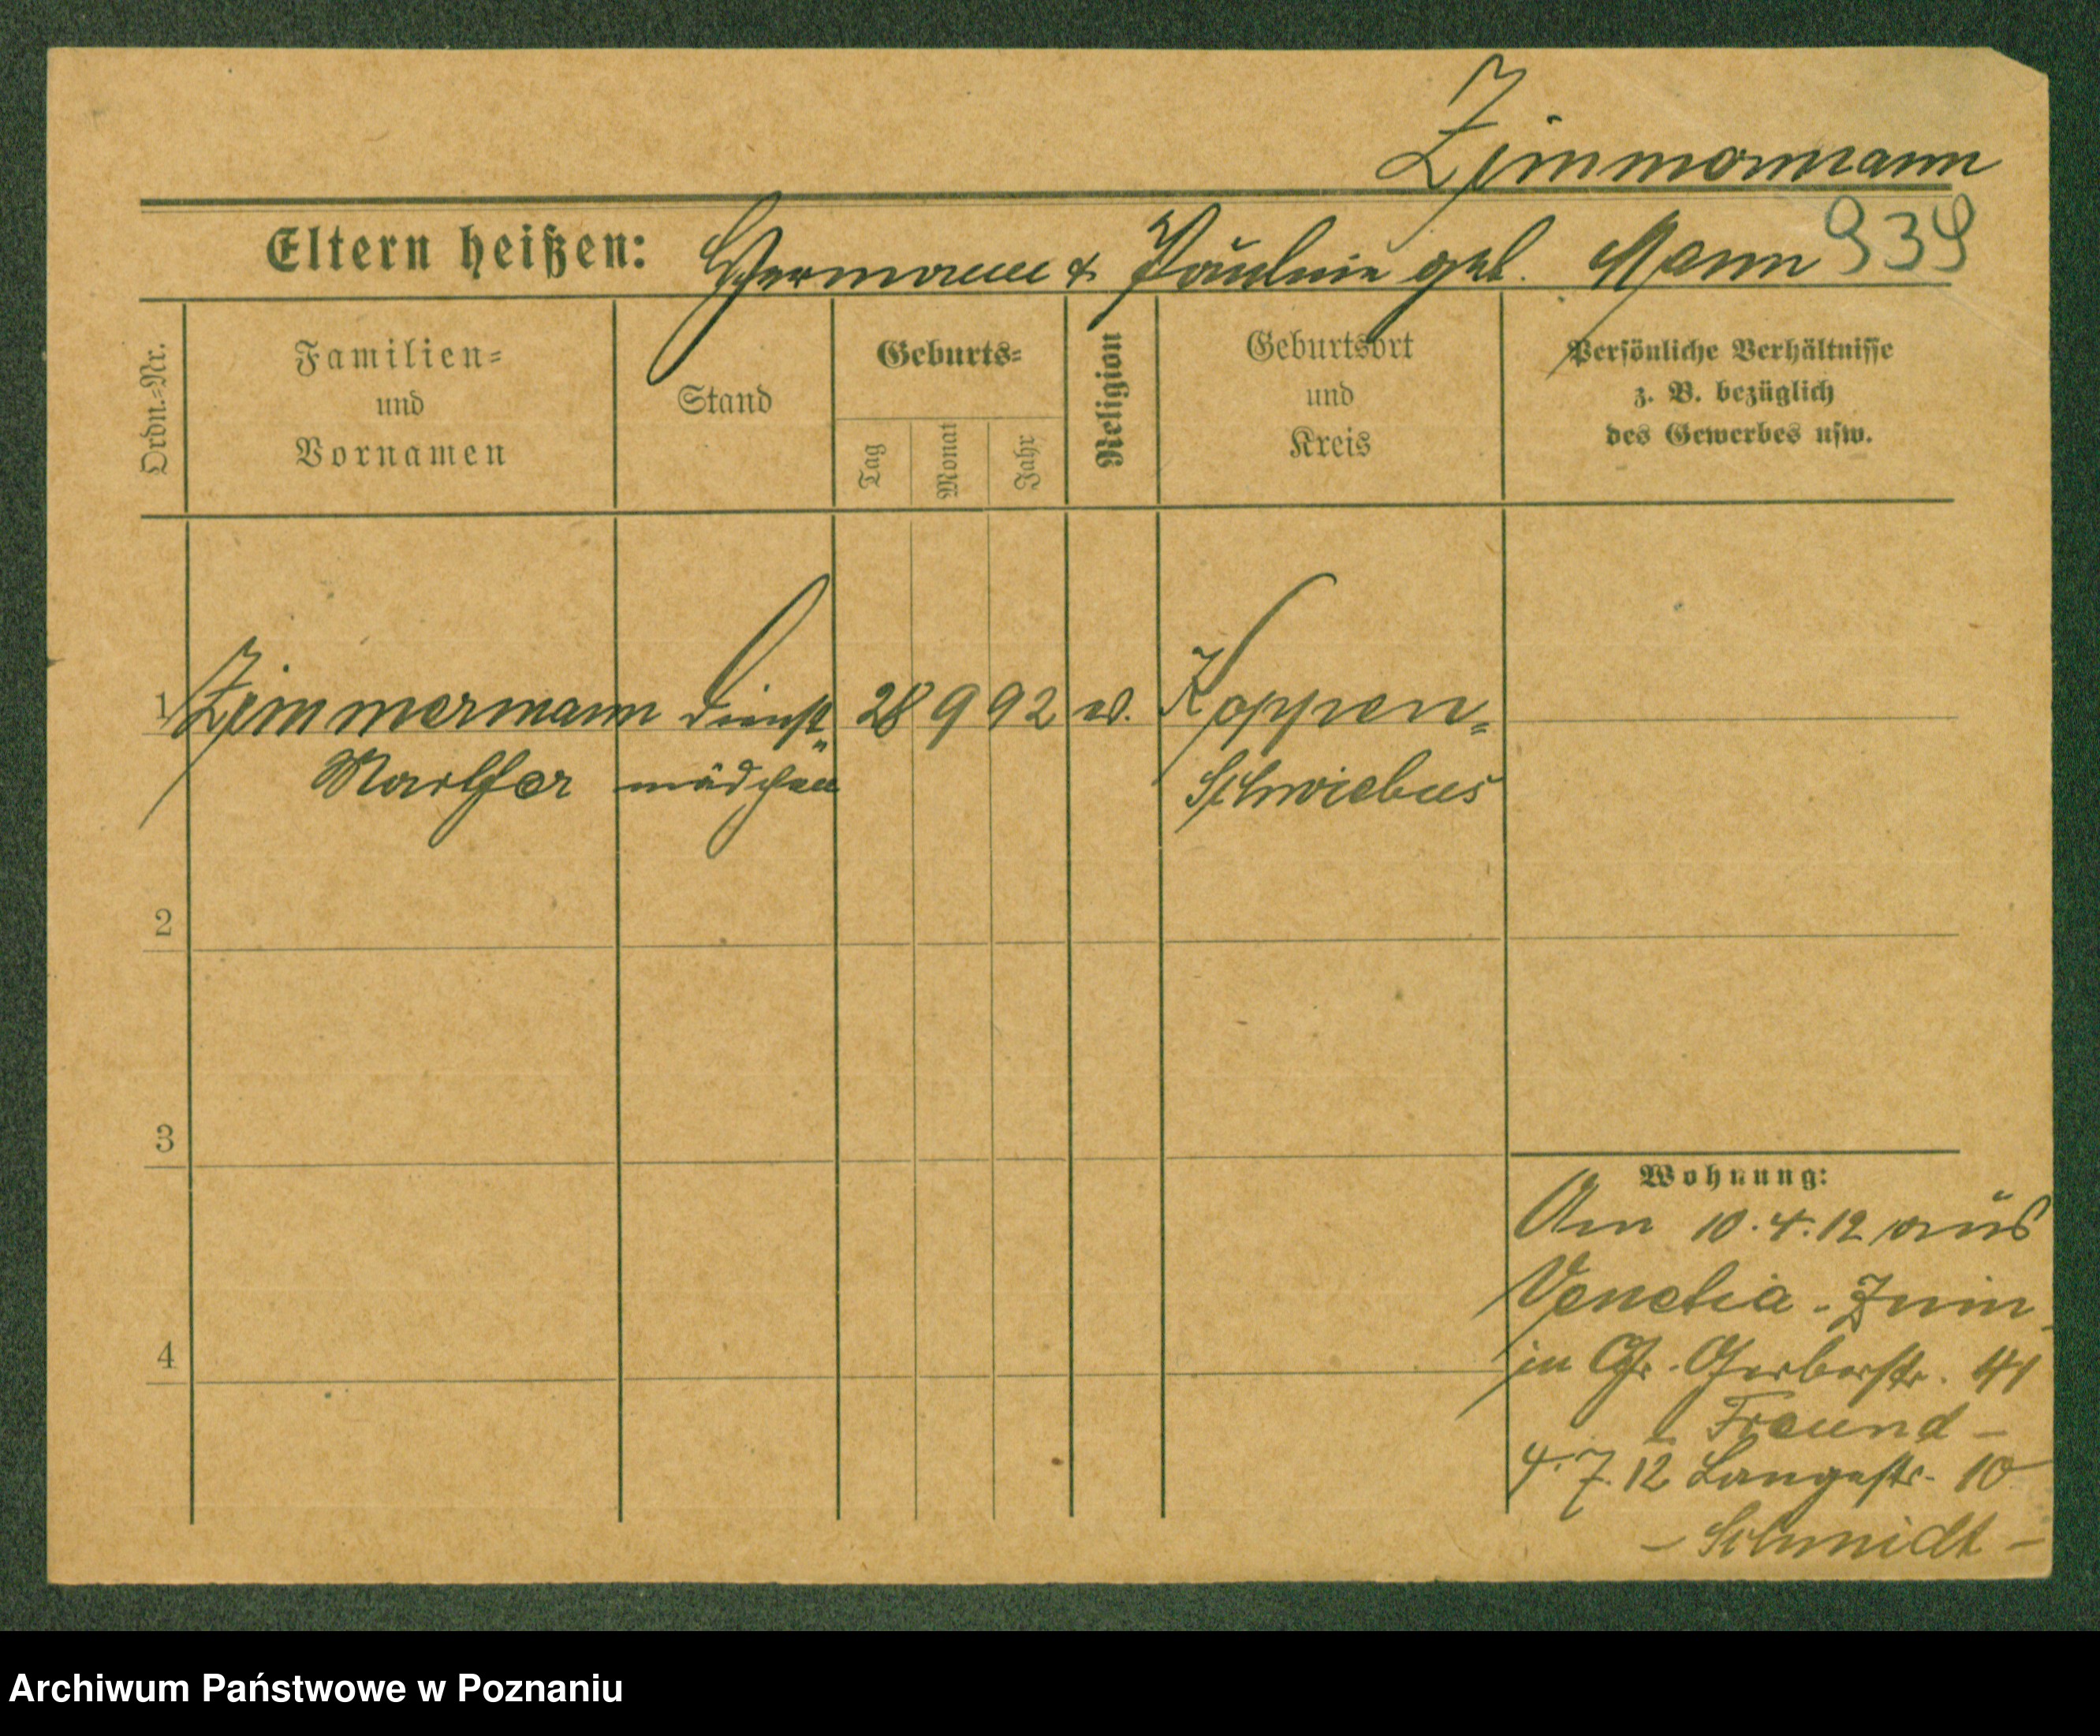 Zimmermann
Eltern heißen: Hermann & Pauline geb. Mann 939
Ordn.=Nr.
Familien=
und
Vornamen
Stand
Geburts=
Tag
Monat
Jahr
Religion
Geburtsort
und
Kreis
Persönliche Verhältnisse
z. B. bezüglich
des Gewerbes usw.
1 Zimmermann Dienst„ 28 9 92 Koppen=
mädchen Schwiebus
2
3
4
Wohnung:
Am 10.4.12 aus
Venetia - Znin
in Gr. Gerberstr. 41
- Freund -
4.7.12 Langestr. 10
- Schmidt -
Archiwum Państwowe w Poznaniu